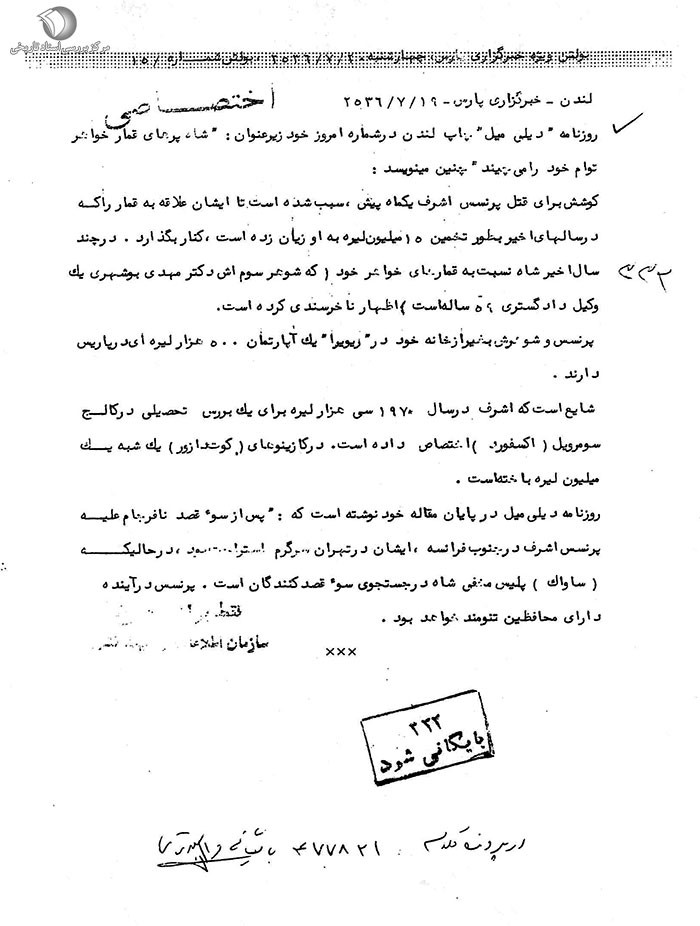 مرکز بررسی اسناد تاریخی
بولتن ویژه خبرگزاری پارس، چهارشنبه- ۲۵۳۶/۷/۲۰، بولتن شماره /۱۵
اختصاصی
لندن - خبرگزاری پارس - ۲۵۳۶/۷/۱۹
روزنامه "دیلی میل" چاپ لندن درشماره امروز خود زیرعنوان: "شاه پرهای قمار خواهر
توام خود را می چیند" چنین مینویسد :
کوشش برای قتل پرنسس اشرف یکماه پیش ،سبب شده است تا ایشان علاقه به قمار راکه
درسالهای اخیر بطور تخمین ۱۵ میلیون لیره به او زیان زده است ، کنار بگذارد . درچند
سال اخیر شاه نسبت به قمارهای خواهر خود ( که شوهر سوم اش دکتر مهدی بوشهری یك
وکیل دادگستری ۵۹ ساله است ) اظهار ناخرسندی کرده است.
پرنسس و شوهرش بغیرازخانه خود در "ریویرا" یك آپارتمان ۵۰۰ هزار لیره ای درپاریس
دارند .
شایع است که اشرف درسال ۱۹۷۰ سی هزار لیره برای یك بورس تحصیلی درکالج
سومرویل ( اکسفورد ) اختصاص داده است. درکازینوهای ( کوت دازور ) یك شبه یك
میلیون لیره باخته است .
روزنامه دیلی میل درپایان مقاله خود نوشته است که : "پس از سوء قصد نافرجام علیه
پرنسس اشرف درجنوب فرانسه ، ایشان درتهران سرگرم استراحت بود ، درحالیکه
( ساواك ) پلیس مخفی شاه درجستجوی سوء قصدکنندگان است . پرنسس درآینده
دارای محافظین تنومند خواهد بود .
فقط
سازمان اطلاعات
×××
۳۳۳
بایگانی شود
۴۷۷۸۲۱